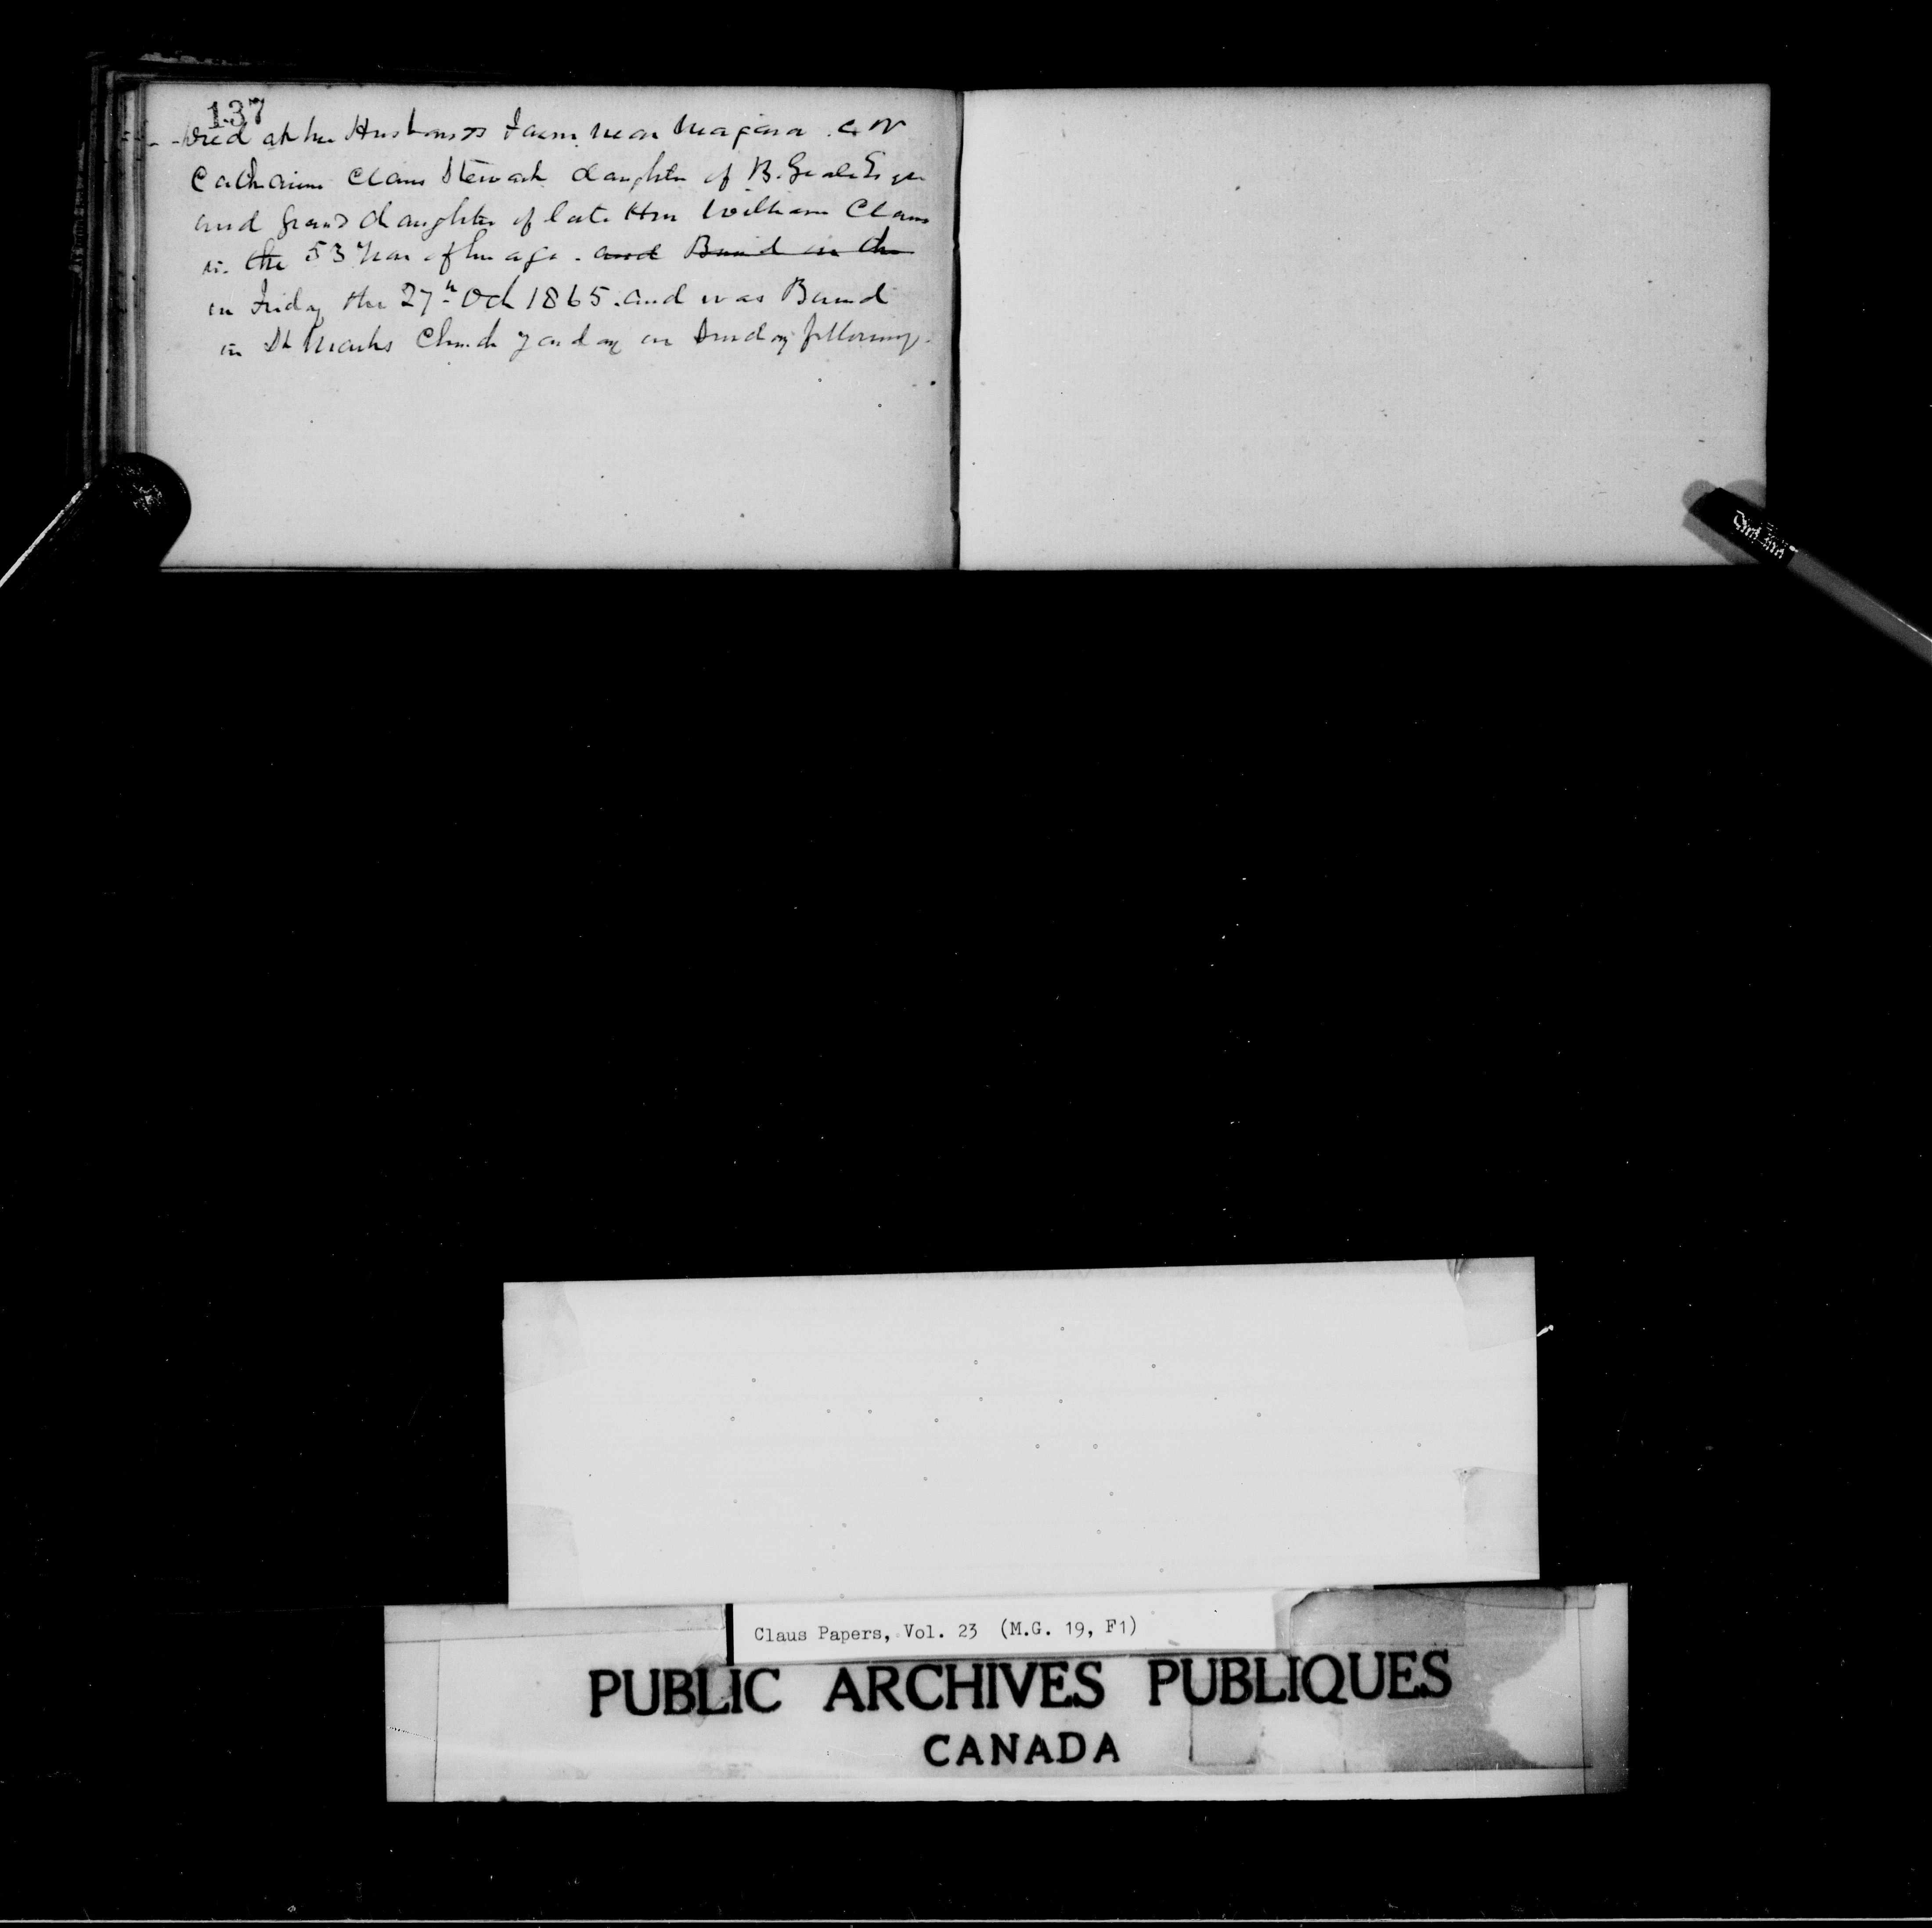 137
Died at her Husbands Farm near Niagara C W
Catharine Claus Stewart daughter of B. Geale Esqr
and Grand daughter of late Hon William Claus
in the 53 Year of her age. and Buried in the
on Friday the 27th Oct 1865. and was Buried
in St Marks Church yard on Sunday following.
Claus Papers, Vol. 23 (M.G. 19, F1)
PUBLIC ARCHIVES PUBLIQUES
CANADA